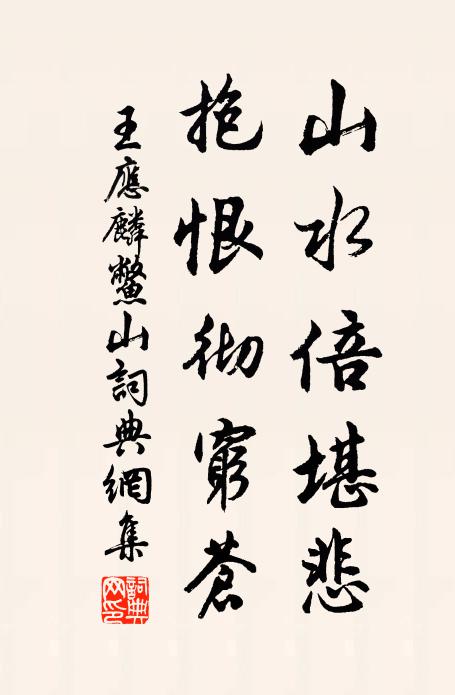 山水倍堪悲
抱恨彻穷苍
王應麟鳖山詞典網集
詞典網印